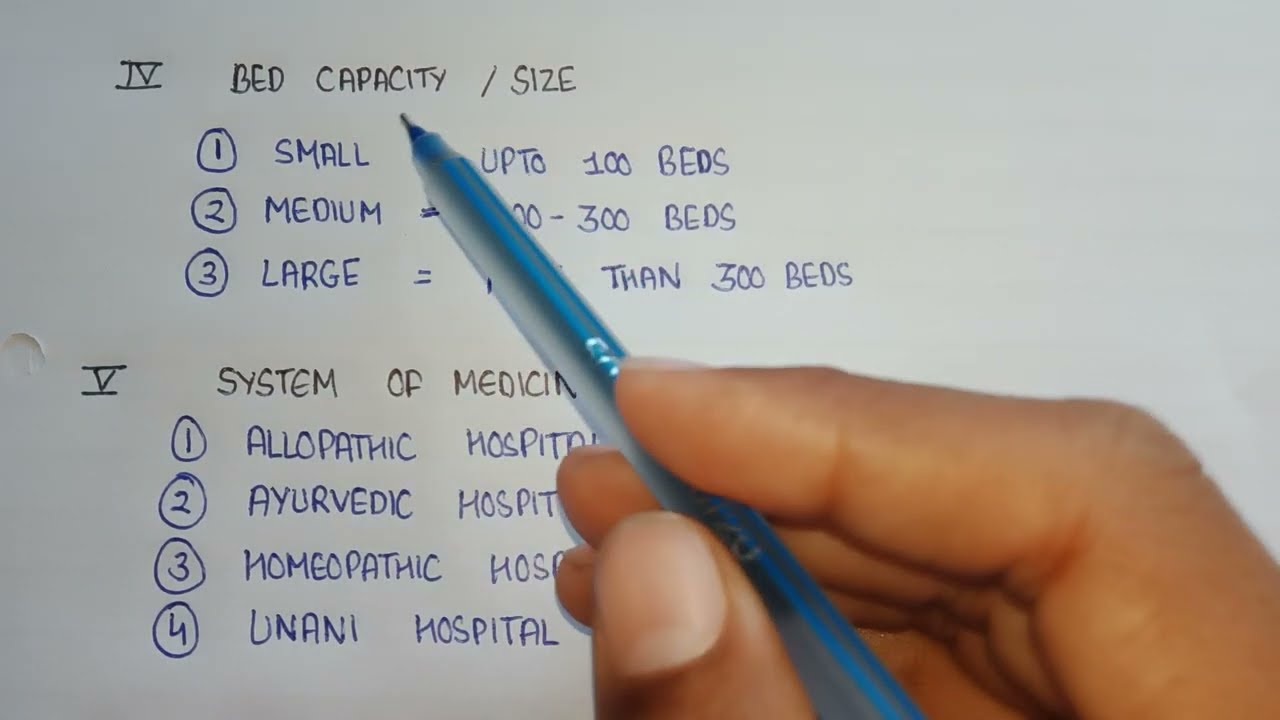 IV BED CAPACITY / SIZE
① SMALL UPTO 100 BEDS
② MEDIUM = 00-300 BEDS
③ LARGE = THAN 300 BEDS
V SYSTEM OF MEDICIN
① ALLOPATHIC HOSPITAL
② AYURVEDIC HOSPIT
③ HOMEOPATHIC HOSP
④ UNANI HOSPITAL